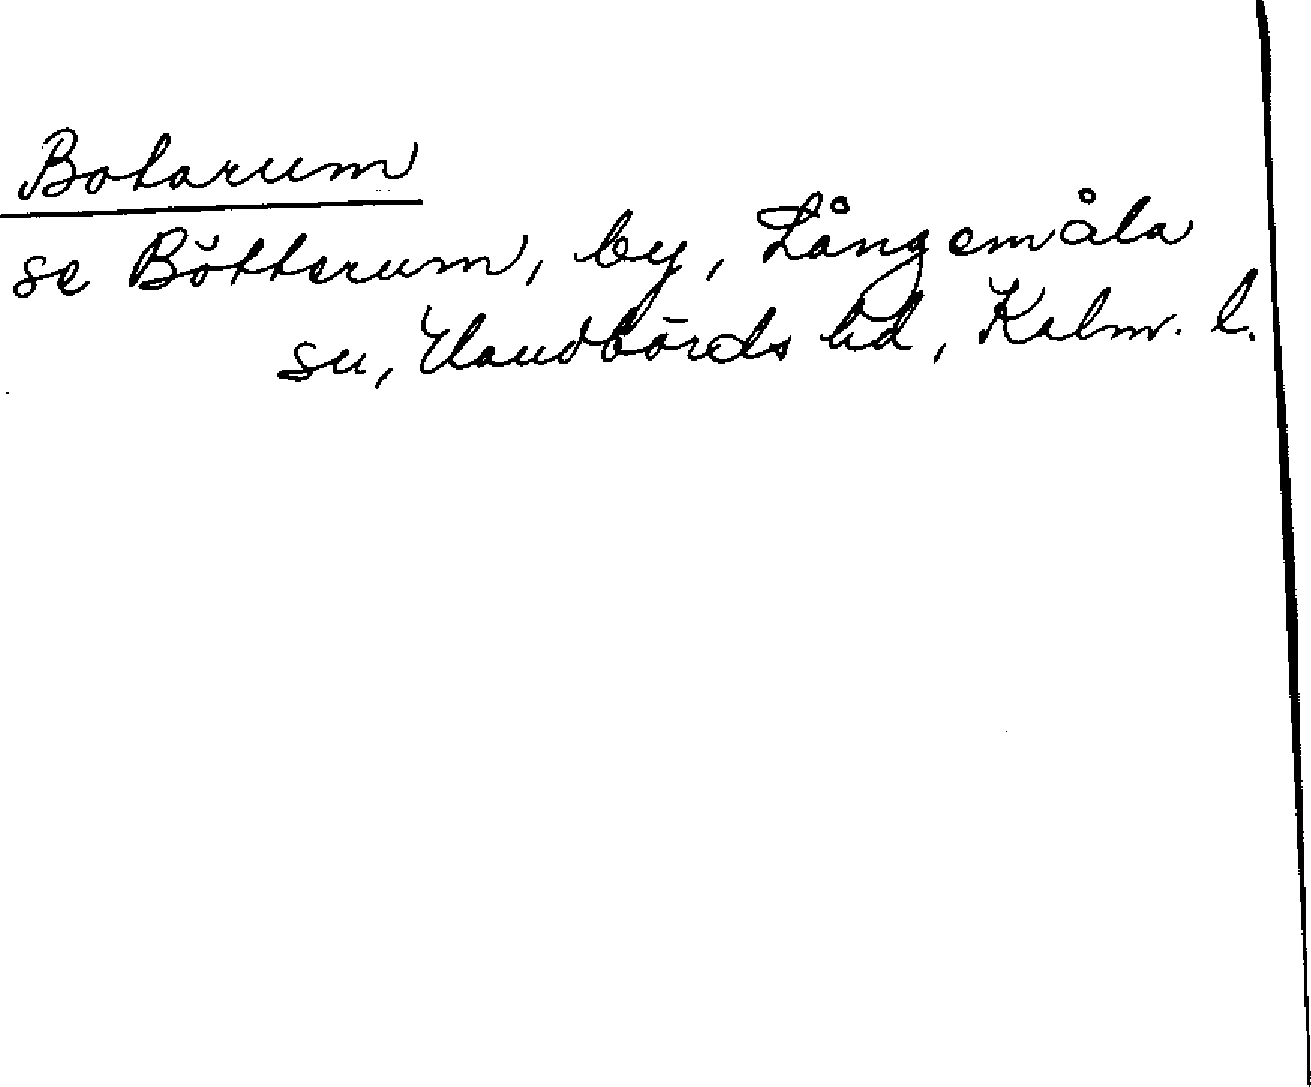 Botarum
se Bötterum, by, Långemåla
sn, Handbörds hd, Kalm. l.